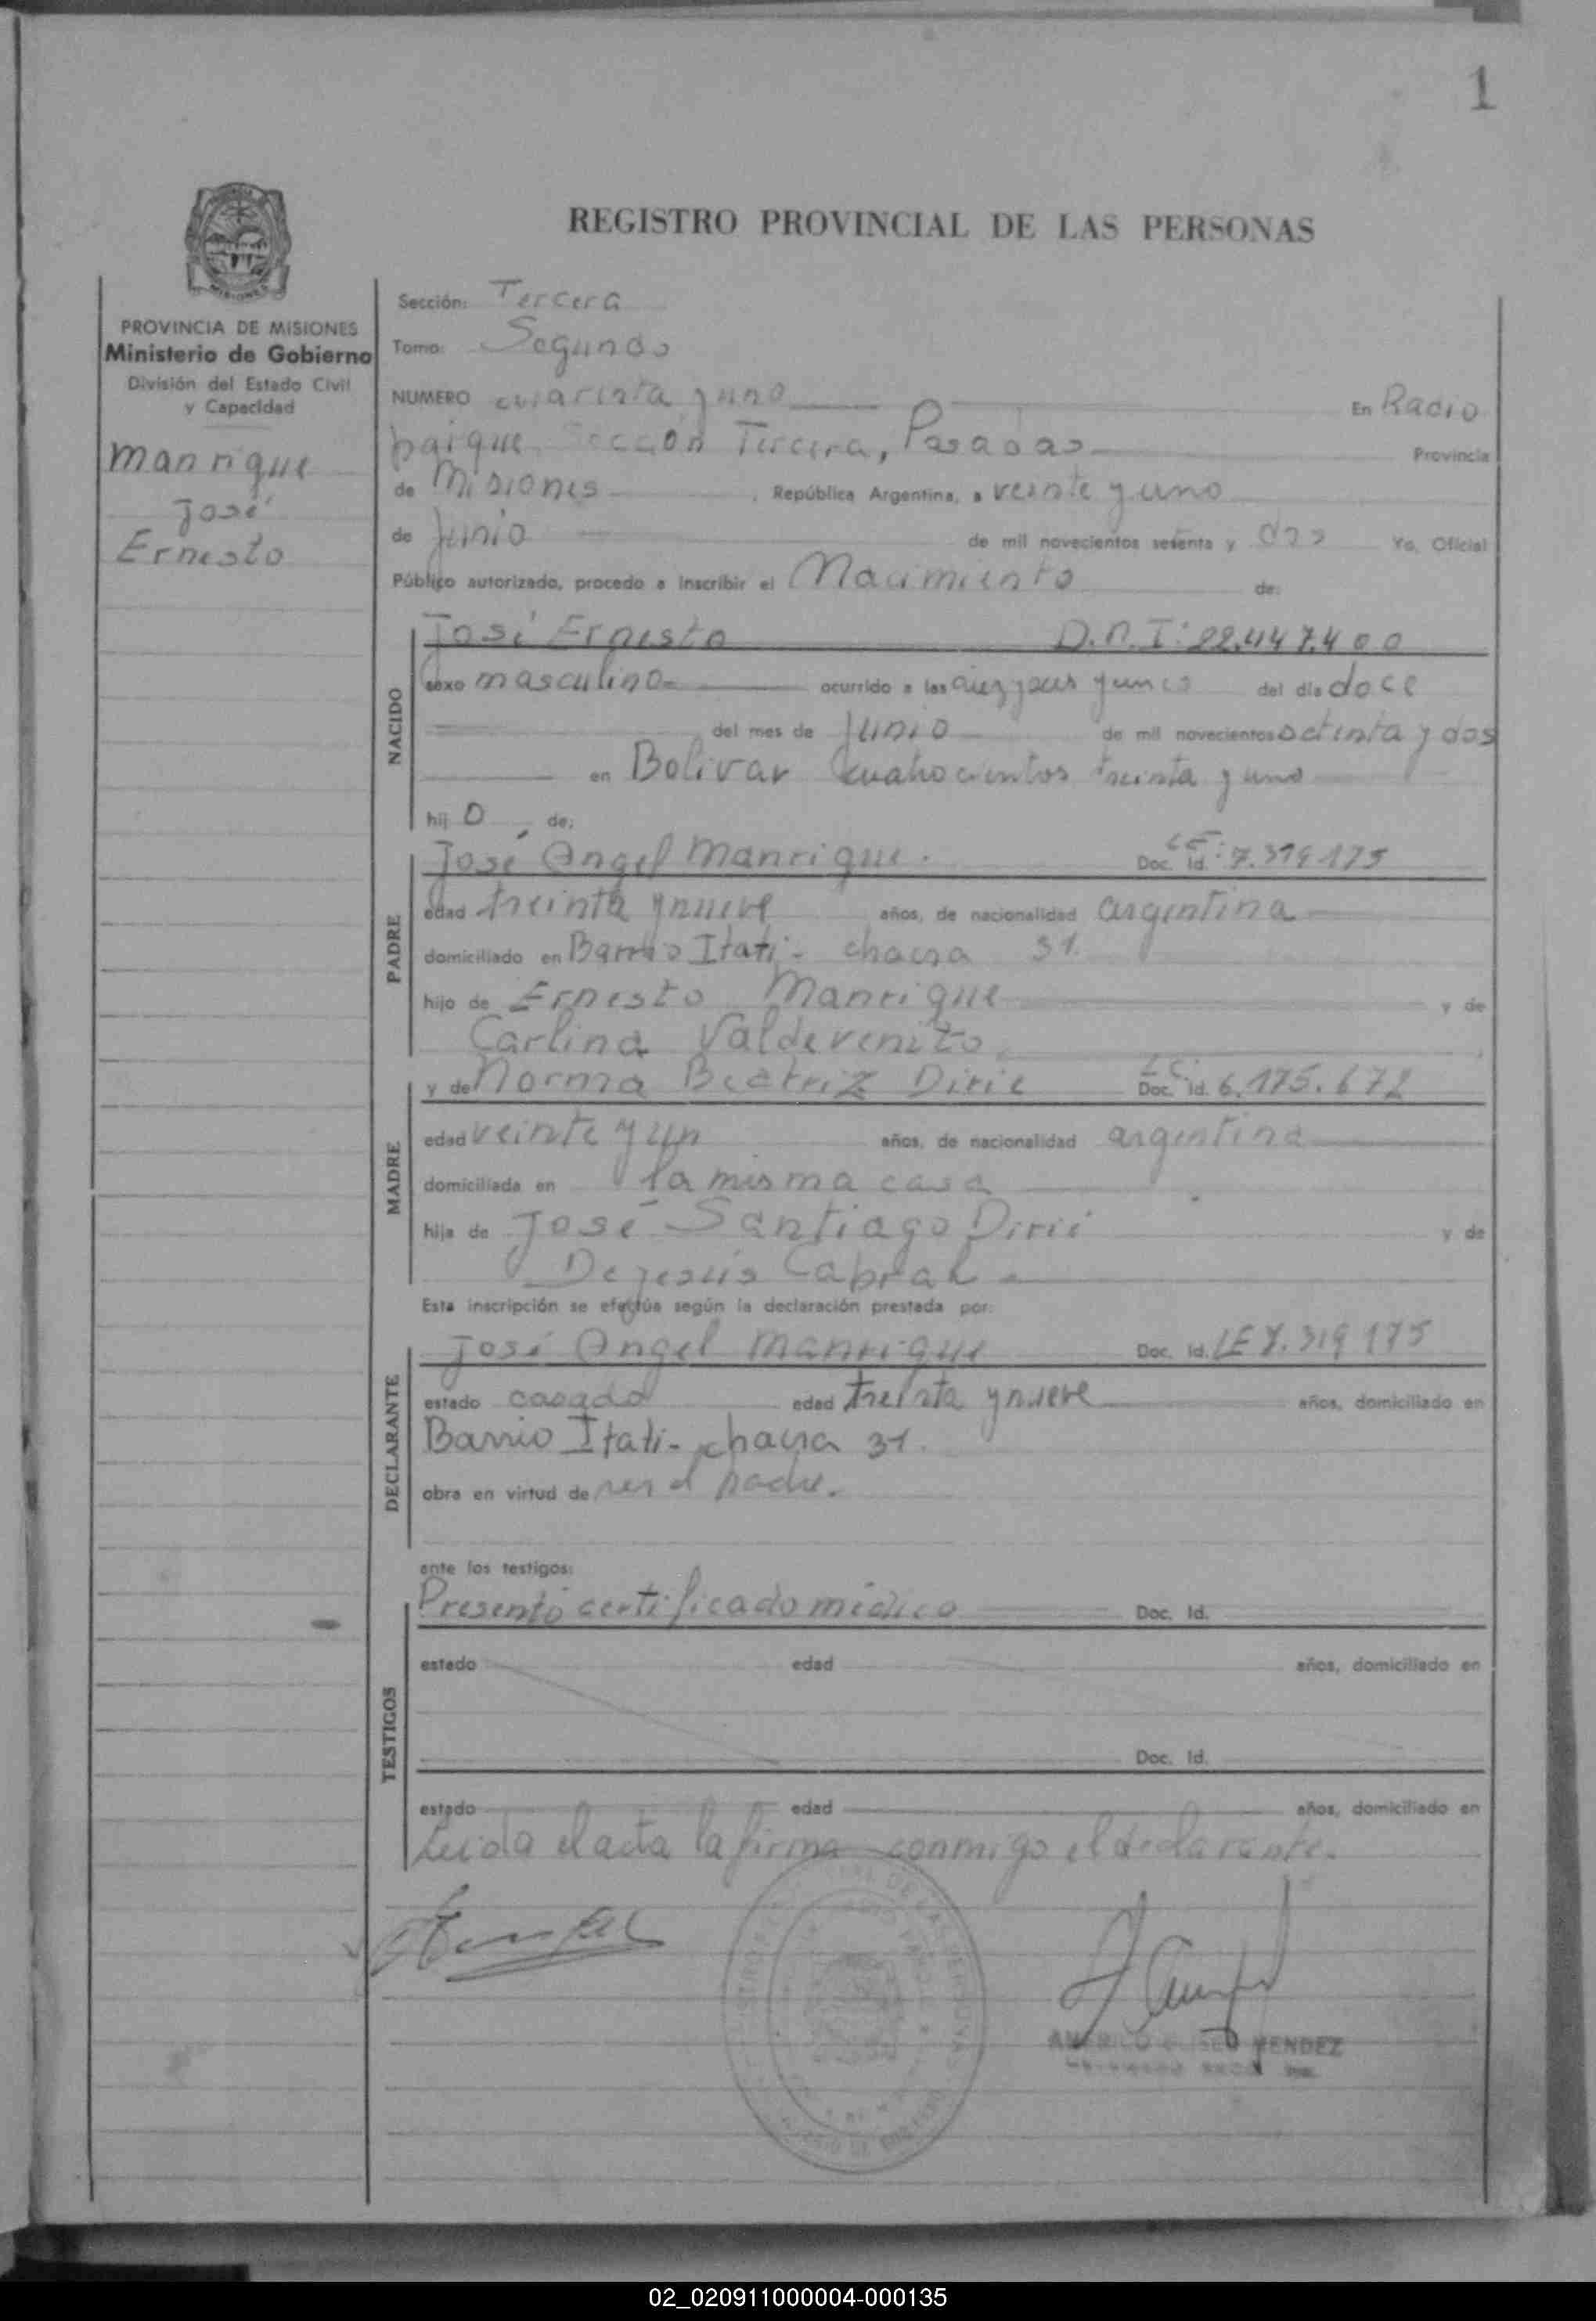 1
REGISTRO PROVINCIAL DE LAS PERSONAS
PROVINCIA DE MISIONES
Ministerio de Gobierno
División del Estado Civil
y Capacidad
Manrique
José
Ernesto
Sección: Tercera
Tomo: Segundo
NUMERO cuarenta y uno En Radio
parque Sección Tercera, Posadas Provincia
de Misiones, República Argentina, a veinte y uno
de Junio de mil novecientos setenta y dos Yo, Oficial
Público autorizado, procedo a inscribir el Nacimiento de:
NACIDO
José Ernesto D.N.I: 22.447.400
sexo masculino ocurrido a las del día doce
del mes de Junio de mil novecientos octenta y dos
en Bolivar cuatrocientos treinta y uno
hijo, de:
PADRE
José Angel Manrique. LE: Doc. Id. 7.319.175
edad treinta y nueve años, de nacionalidad argentina
domiciliado en Barrio Itatí - chacra 31.
hijo de Ernesto Manrique y de
Carlina Valdevenito
MADRE
y de Norma Beatriz Dirié LC. Doc. Id. 6.175.672
edad veinte y un años, de nacionalidad argentina
domiciliada en la misma casa
hija de José Santiago Dirié y de
Dejesús Cabral
Esta inscripción se efectúa según la declaración prestada por:
DECLARANTE
José Angel Manrique Doc. Id. LE 7.319 175
estado casado edad treinta y nueve años, domiciliado en
Barrio Itatí - chacra 31.
obra en virtud de ser el padre.
ante los testigos:
TESTIGOS
Presentó certificado médico Doc. Id.
estado edad años, domiciliado en
Doc. Id.
estado edad años, domiciliado en
Leida el acta la firma conmigo el declarante.
MENDEZ
02_020911000004-000135